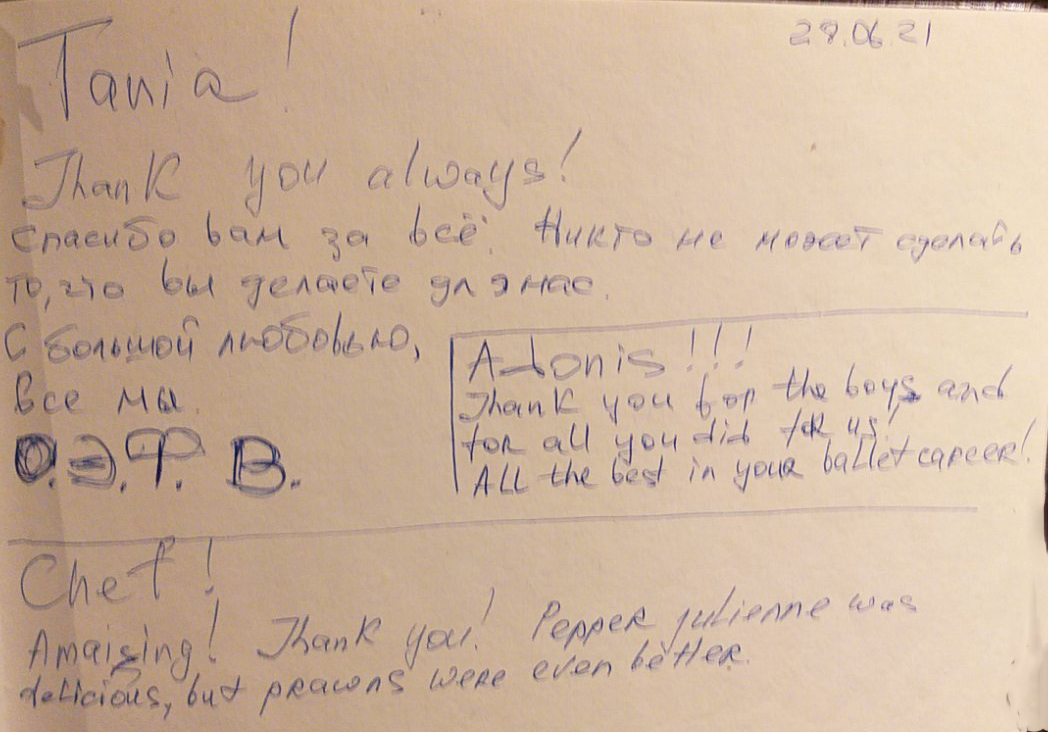 28.06.21
Tania!
Thank you always!
Спасибо вам за всё. Никто не может сделать
то, что вы делаете для нас.
С большой любовью,
Все мы.
О.Э.Т. В.
Adonis!!!
Thank you for the boys and
for all you did for us!
All the best in your ballet career!
Chef!
Amaizing! Thank you! Pepper julienne was
delicious, but prawns were even better.